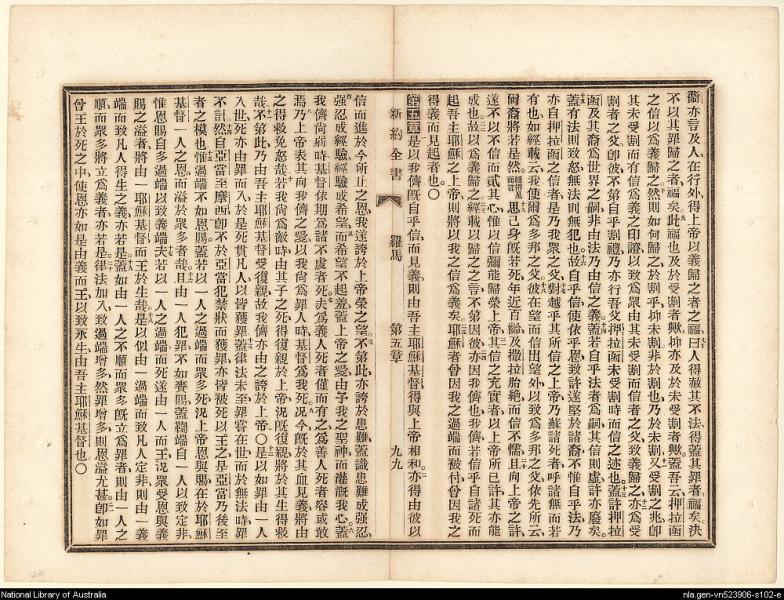 衞亦言及人在行外得上帝以義歸之者之福曰人得赦其不法得蓋其罪者福矣決
不以其罪歸之者福矣此福也及於受割者歟抑亦及於未受割者歟蓋吾云押拉函
之信以爲義歸之然則如何歸之於割乎抑未割非於割也乃於未割又受割之兆卽
其未受割而有信爲義之印證以致爲衆由其未受割而信者之父致以義歸之亦爲受
割者之父卽彼不第自乎割禮乃亦行吾父押拉函未受割時而信之述也蓋許押拉
函及其裔爲世界之嗣非由法乃由信之義蓋若自乎法者爲嗣其信則虛許亦廢矣
蓋有法則致怒無法則無犯也故自乎信使依乎恩致許遂堅於諸裔不惟自乎法乃
亦自押拉函之信者是乃我眾之父對越乎其所信之上帝乃蘇諸死者呼諸無而若
有也如經載云我使爾爲多邦之父彼在望而信出望外以致爲多邦之父依先所云
爾裔將若是然思己身旣若死年近百齡及撒拉胎絕而信不懦且向上帝之許
遂不以不信而貳其心惟以信彌能歸榮上帝其信之充實者以上帝所已許其亦能
成也故以爲義歸之經載以歸之之言不第因彼亦因我儕也我儕若信乎自諸死而
起吾主耶穌之上帝則將以我之信爲義矣耶穌者曾因我之過端而被付曾因我之
得義而見起者也○
第五章是以我儕旣自乎信而見義則由吾主耶穌基督得與上帝相和亦得由彼以
新約全書 羅馬 第五章 九九
信而進於今所止之恩我遂誇於上帝榮之望不第此亦誇於患難蓋識患難成强忍
强忍成經驗經驗成希望而希望不起羞蓋上帝之愛由予我之聖神而灌漑我心蓋
我儕尙荏時基督依期爲諸不虔者死夫爲義人死者僅而有之爲善人死者容或敢
焉乃上帝表其向我儕之愛以我尙爲罪人時基督爲我死況今旣於其血見義將由
之得救免怒哉若我尙爲敵時由其子之死得復親於上帝況旣復親將於其生得救
哉不第此乃由吾主耶穌基督受復親故我儕亦由之誇於上帝○是以如罪由一人
入世死亦由罪而入於是死貫凡人以皆獲罪蓋律法未至罪嘗在世而於無法時罪
不計然自亞當至摩西卽不於亞當犯禁狀而獲罪亦皆被死以王之是亞當乃後至
者之模也惟過端不如恩賜蓋若以一人之過端而眾多死況上帝恩與賜在於耶穌
基督一人之恩而溢於眾多者哉且由一人犯罪不如賚賜蓋鞫端自一人以致定非
惟恩賜自多過端以致義端夫若以一人之過端而死遂由一人而王況眾受恩與義
賜之溢者將由一耶穌基督而王於生哉是以似由一過端而致凡人定非則由一義
端而致凡人得生之義亦若是蓋如由一人之不順而眾多旣立爲罪者則由一人之
順而眾多將立爲義者亦若是律法加入致過端增多然罪增多則恩溢尤甚卽如罪
曾王於死之中使恩亦如是由義而王以致永生由吾主耶穌基督也○
National Library of Australia
nla.gen-vn523906-s102-e